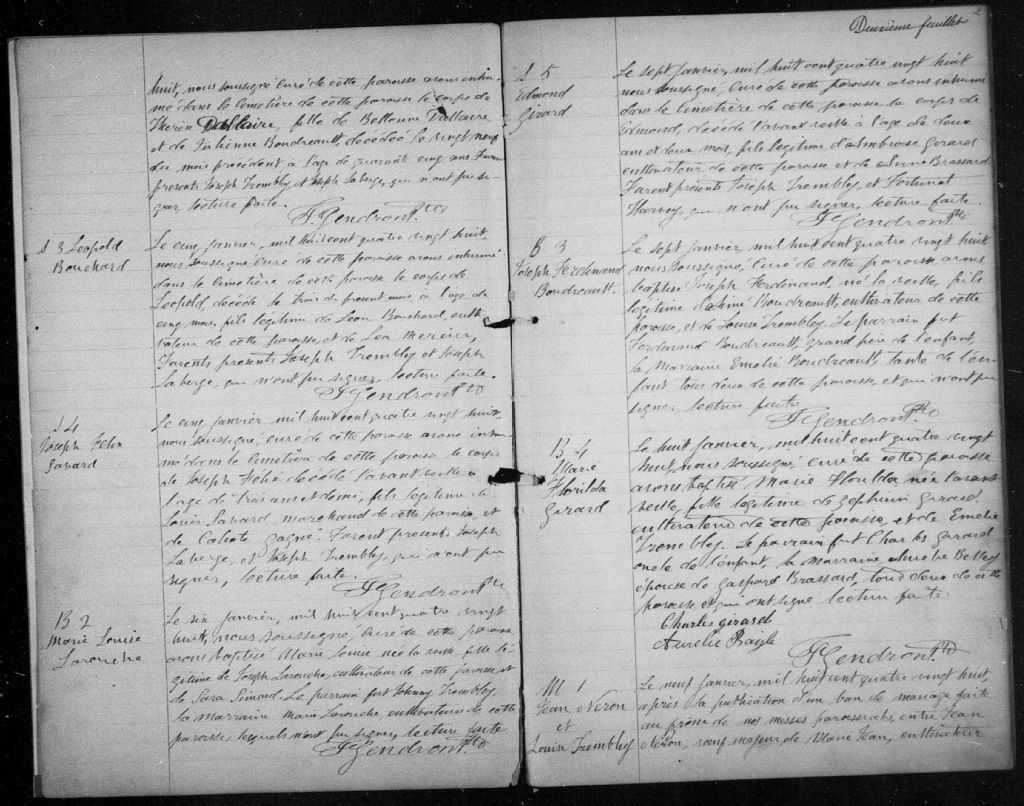 huit, nous soussigné curé de cette paroisse avons inhu-
mé dans le cimetière de cette paroisse le corps de
Dallaire, fille de Dallaire,
et de Boudreault, décédée le vingt neuf
du mois précédent à l'age de quarante cinq ans. Furent
présents Joseph Trembley et Joseph Laberge, qui n'ont pu si-
gner, lecture faite.
F. Gendron Ptre
S 3 Leopold
Bouchard
Le cinq Janvier, mil huit cent quatre vingt huit,
nous soussigné curé de cette paroisse avons inhumé
dans le cimetière de cette paroisse le corps de
Leopold, décédé le trois du present mois à l'age de
cinq mois, fils légitime de Leon Bouchard, culti-
vateur de cette paroisse, et de Lea Mercier,
Furents presents Joseph Trembley et Joseph
Laberge, qui n'ont pu signer, lecture faite.
F. Gendron Ptre
S 4
Joseph Félix
Savard
Le cinq Janvier mil huit cent quatre vingt huit,
nous soussigné, curé de cette paroisse avons inhu-
mé dans le cimetière de cette paroisse le corps
de Joseph Félix décédé l'avant veille à
l'age de trois ans et demi, fils legitime de
Louis Savard marchand de cette paroisse, et
de Gagné. Furent presents Joseph
Laberge, et Joseph Trembley, qui n'ont pu
signer, lecture faite.
F. Gendron Ptre
B 2
Marie Louise
Larouche
Le six Janvier, mil huit cent quatre vingt
huit, nous soussigné, curé de cette paroisse
avons baptisé Marie Louise née la veille, fille lé-
gitime de Joseph Larouche, cultivateur de cette paroisse, et
de Sara Simard. Le parrain fut Johnny Trembley,
la marraine Marie Larouche, cultivateurs de cette
paroisse, lesquels n'ont pu signer, lecture faite
F. Gendron Ptre
Deuxième feuillet
S 5
Edmond
Girard
Le sept Janvier, mil huit cent quatre vingt huit
nous soussigné, curé de cette paroisse avons inhumé
dans le cimetière de cette paroisse le corps de
Edmond, décédé l'avant veille à l'age de deux
ans et deux mois, fils legitime d'Ambroise Gerard
cultivateur de cette paroisse et de Brassard
Furent présents Joseph Trembley, et Fortunat
Harvey, qui n'ont pu signer, lecture faite.
F. Gendron Ptre
B 3
Joseph Ferdinand
Boudreault.
Le sept janvier, mil huit cent quatre vingt huit,
nous soussigné, curé de cette paroisse avons
baptisé Joseph Ferdinand, né la veille, fils
légitime d'Aimé Boudreault, cultivateur de cette
paroisse, et de Louise Trembley. Le parrain fut
Ferdinand Boudreault, grand père de l'enfant,
la Marraine Emelie Boudreault, tante de l'en-
fant tous deux de cette paroisse, et qui n'ont pu
signer, lecture faite
F. Gendron Ptre
B 4
Marie
Florilda
Girard
Le huit Janvier, mil huit cent quatre vingt
huit, nous soussigné curé de cette paroisse
avons baptisé Marie Florilda née l'avant
veille, fille legitime de Zephirin Girard,
cultivateur de cette paroisse, et de Emelie
Trembley. Le parrain fut Charles Gerard
oncle de l'enfant, la Marraine Aurelie
épouse de Gaspard Brassard, tous deux de cette
paroisse, et qui ont signé lecture faite
Charles girard
Aurelie
F. Gendron Ptre
M 1
Jean Neron
et
Louise Trembley
Le neuf Janvier, mil huit cent quatre vingt huit,
après la publication d'un ban de mariage faite
au prône de nos messes paroissiales, entre Jean
Néron, veuf majeur de Jean, cultivateur